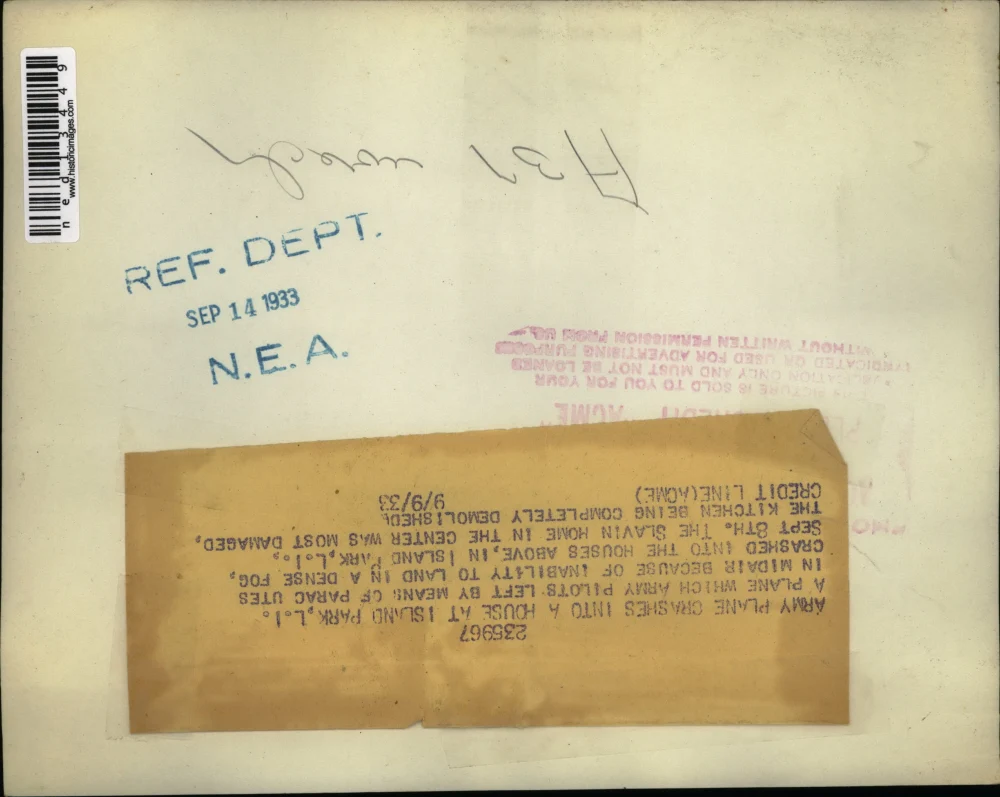 ned13449
www.historicimages.com
A31
REF. DEPT.
SEP 14 1933
N.E.A.
CREDIT "ACME"
PICTURE IS SOLD TO YOU FOR YOUR
PUBLICATION ONLY AND MUST NOT BE LOANED
SYNDICATED OR USED FOR ADVERTISING PURPOSES
WITHOUT WRITTEN PERMISSION FROM US.
235967
ARMY PLANE CRASHES INTO A HOUSE AT ISLAND PARK,L.I.
A PLANE WHICH ARMY PILOTS LEFT BY MEANS OF PARAC UTES
IN MIDAIR BECAUSE OF INABILITY TO LAND IN A DENSE FOG,
CRASHED INTO THE HOUSES ABOVE,IN ISLAND PARK,L.I.,
SEPT 8TH. THE SLAVIN HOME IN THE CENTER WAS MOST DAMAGED,
THE KITCHEN BEING COMPLETELY DEMOLISHED.
CREDIT LINE(ACME) 9/9/33